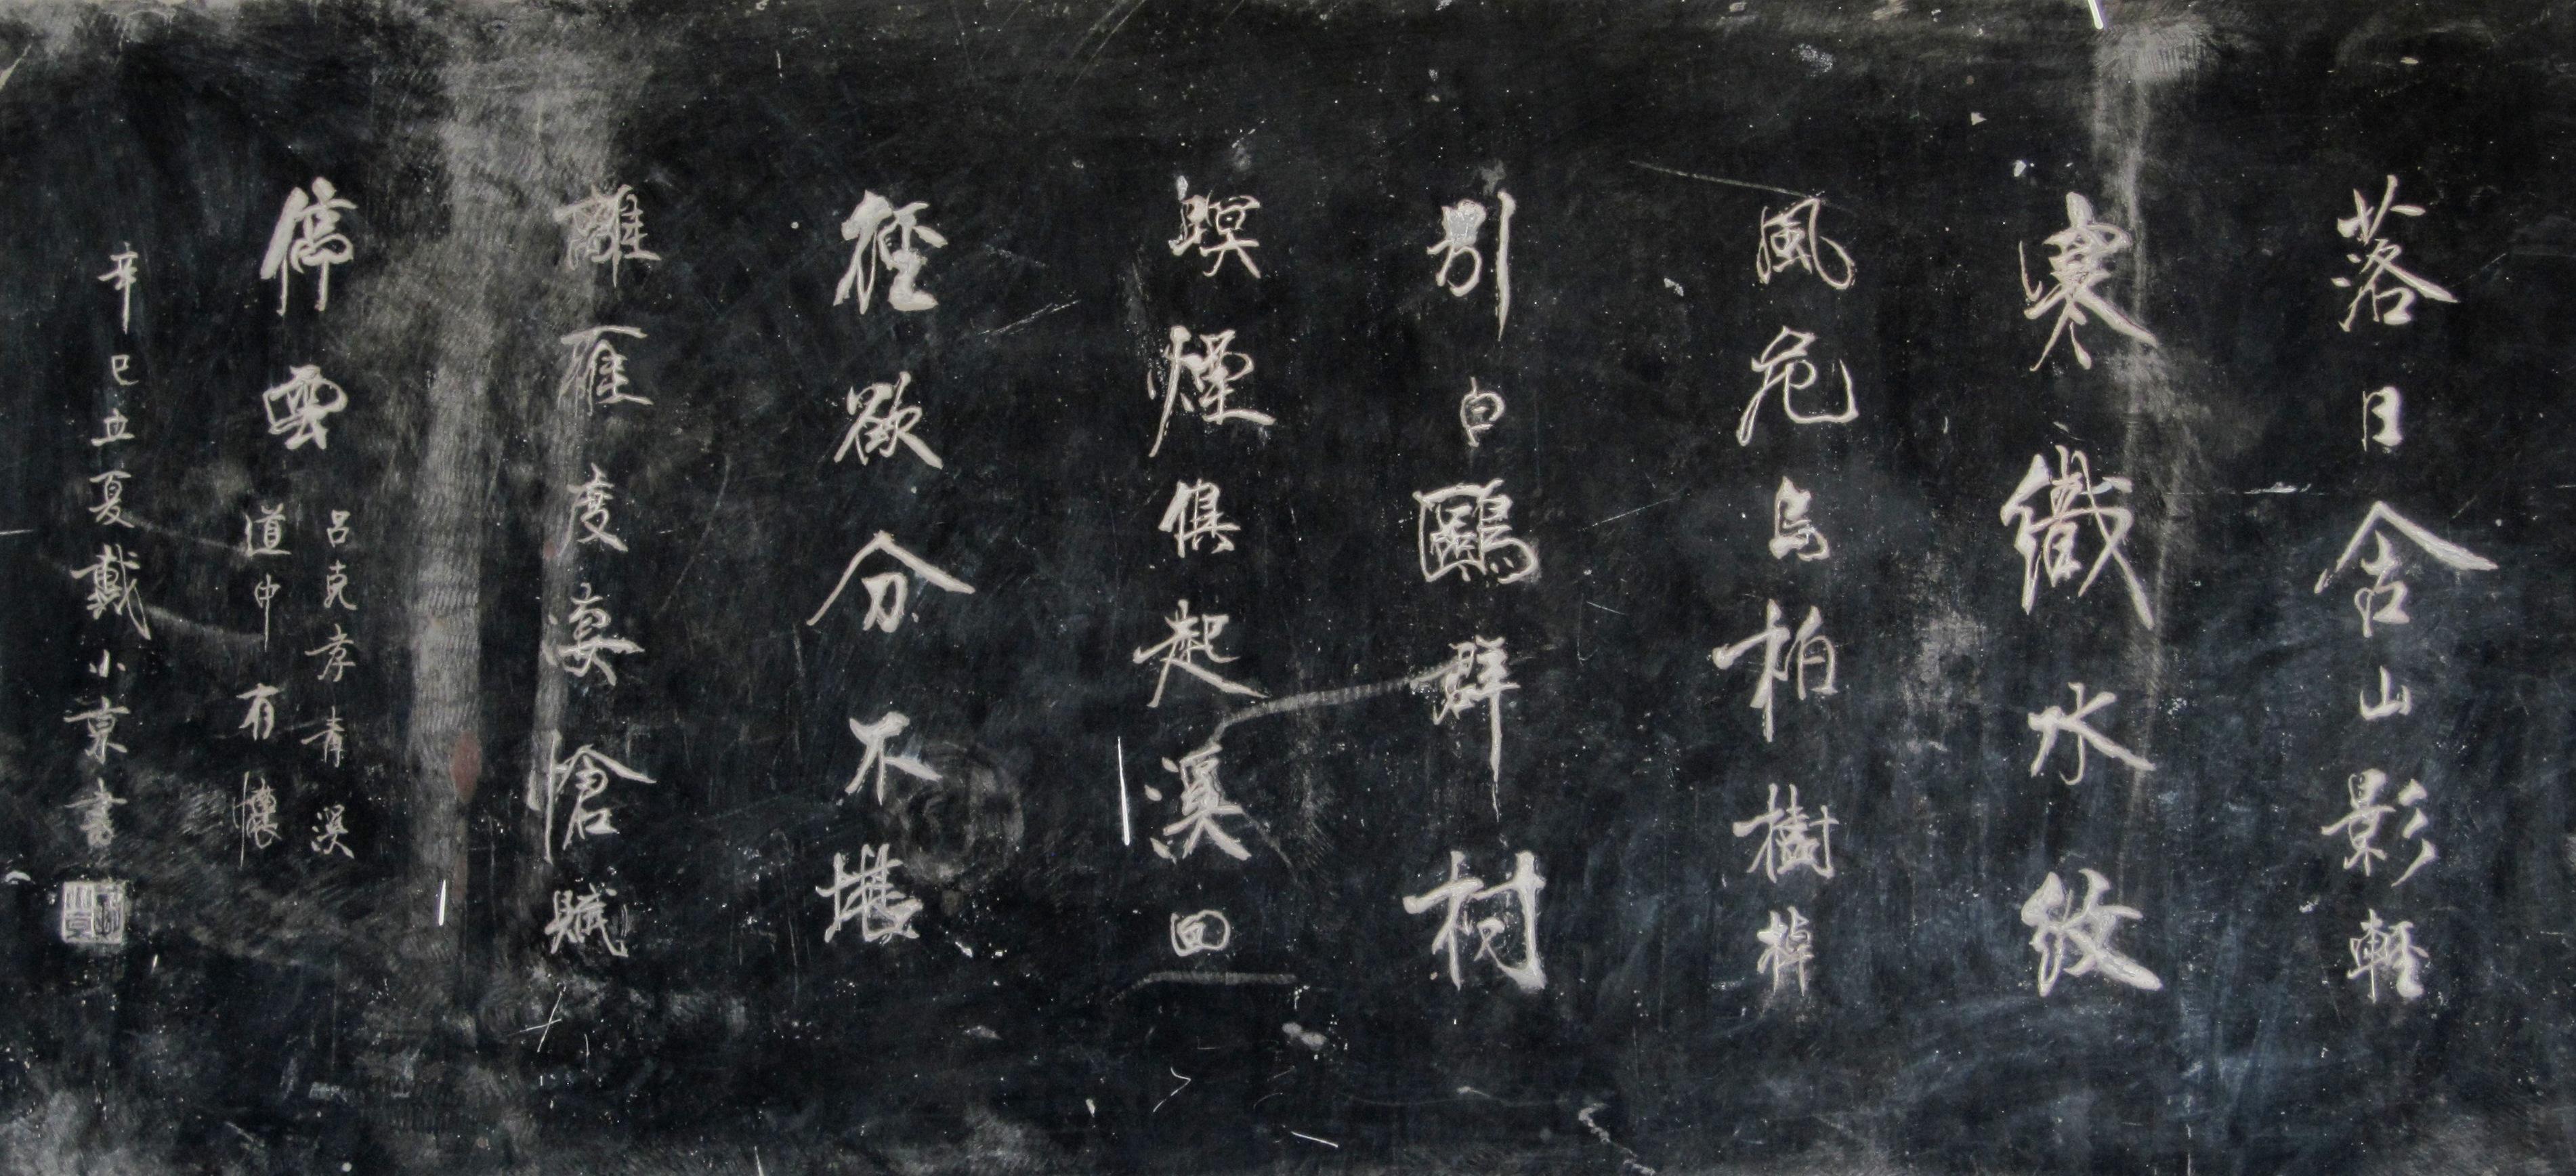 落日含山影輕
寒織水紋
風危烏柏樹棹
引白鷗群村
暝煙俱起溪回
徑欲分不堪
離雁度凄愴賦
停雲
呂克孝青溪
道中有懷
辛巳立夏戴小京書